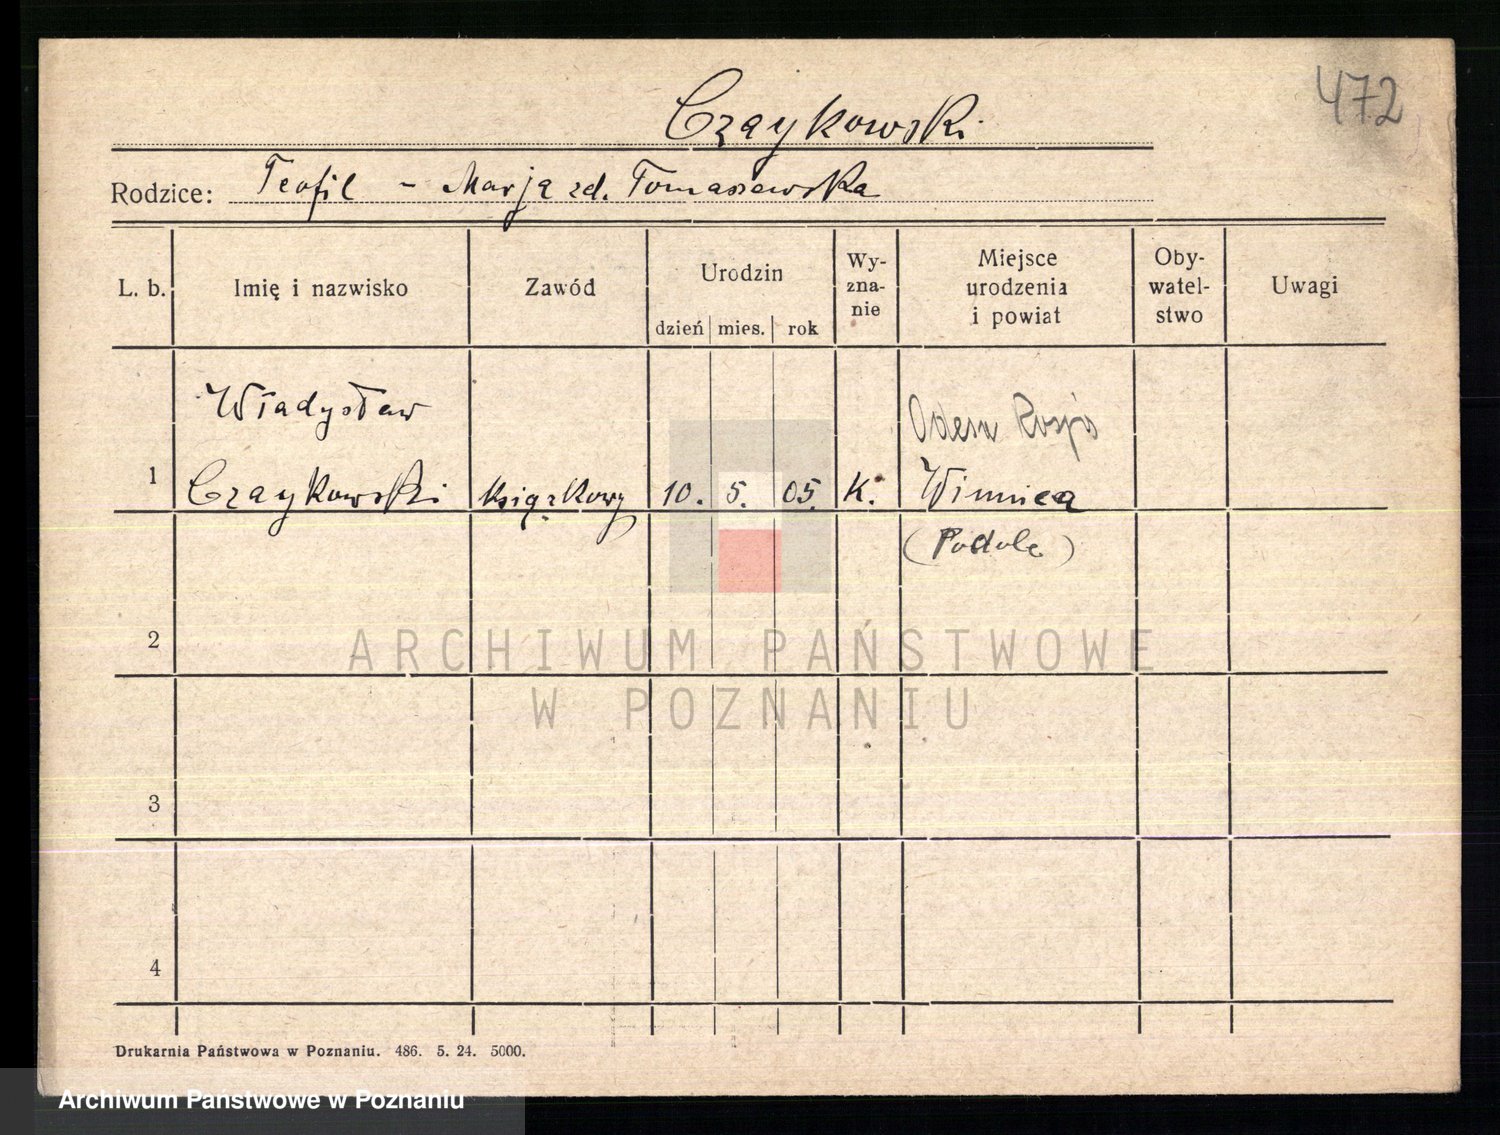 472
Czaykowski
Rodzice: Teofil - Marja zd. Tomaszewska
L. b. Imię i nazwisko Zawód Urodzin dzień mies. rok Wy-zna-nie Miejsce urodzenia i powiat Oby-watel-stwo Uwagi
Władysław Odessa Rosja
1 Czaykowski Książkowy 10. 5. 05. K. Winnica
(Podole)
2
ARCHIWUM PAŃSTWOWE
W POZNANIU
3
4
Drukarnia Państwowa w Poznaniu. 486. 5. 24. 5000.
Archiwum Państwowe w Poznaniu